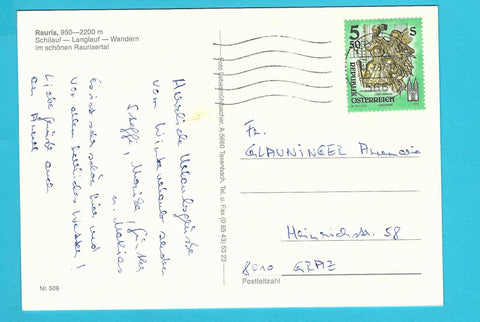 Rauris, 950—2200 m
Schilauf — Langlauf — Wandern
im schönen Raurisertal
Herzliche Urlaubsgrüße
vom Winterurlaub senden
Steffi, Moritz, Günter
u. Mathias
Es ist sehr schön hier und
vor allem herrliches Wetter!
Liebe Grüße auch
an
Nr. 509
A-5660 Taxenbach, Tel. u. Fax (0 65 43) 53 23
5 50 S
REPUBLIK
ÖSTERREICH
Fr.
GLAUNINGER
Heinrichstr. 58
8010 GRAZ
Postleitzahl